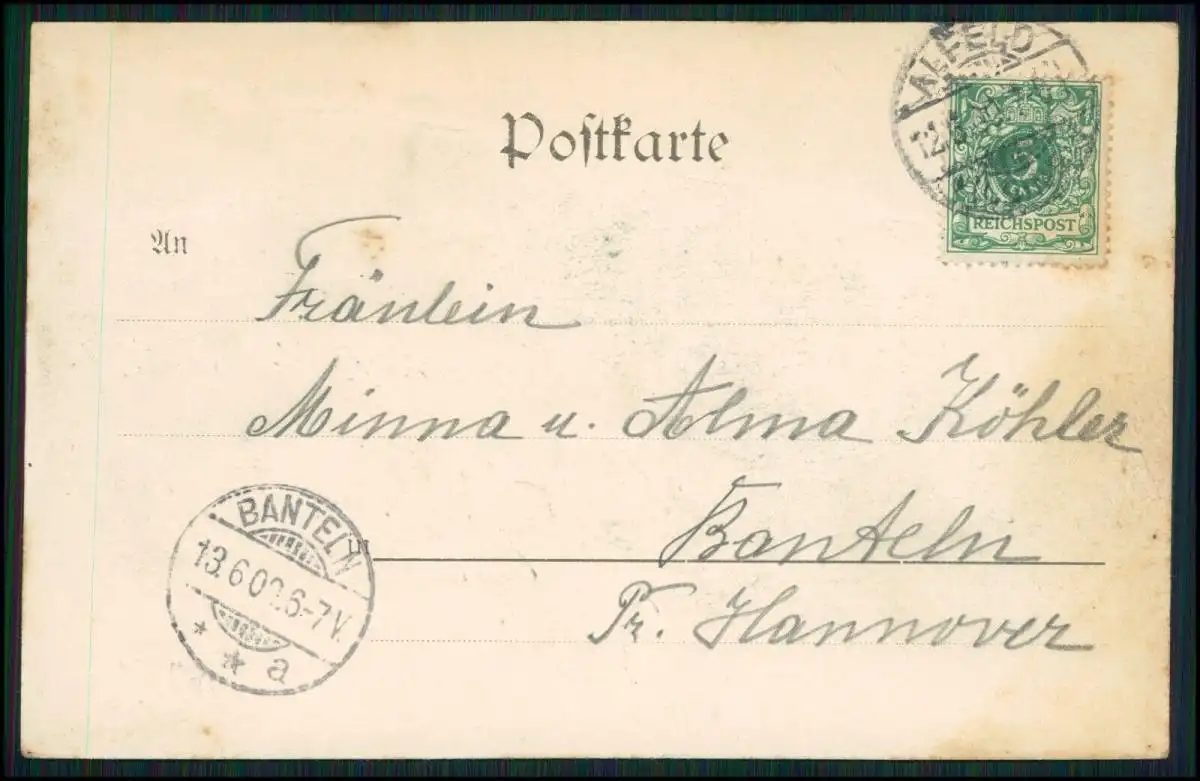 Postkarte
ALFELD
5
REICHSPOST
An
Fräulein
Minna u. Alma Köhler
BANTELN
13.6.00.6-7V.
* * a
Banteln
Pr. Hannover